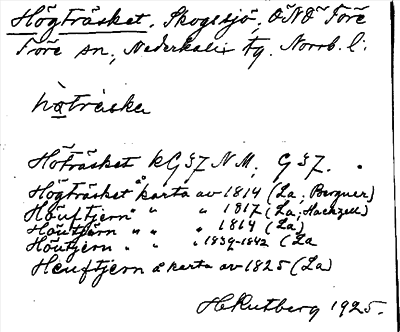 Högträsket. Skogssjö, ÖNÖ Töre
Töre sn., Nederkalix tg. Norrb. l.
hö̀träska
Höträsket KG 37 NM; G 37.
Högträsket å karta av 1814 (La; Bergner)
Höuftjern " " " 1817 (La; Hackzell)
Höutjärn " " " 1864 (La)
Höutjern " " " 1839-1842 (La
Heuftjern å karta av 1825 (La)
H. Rutberg 1925.